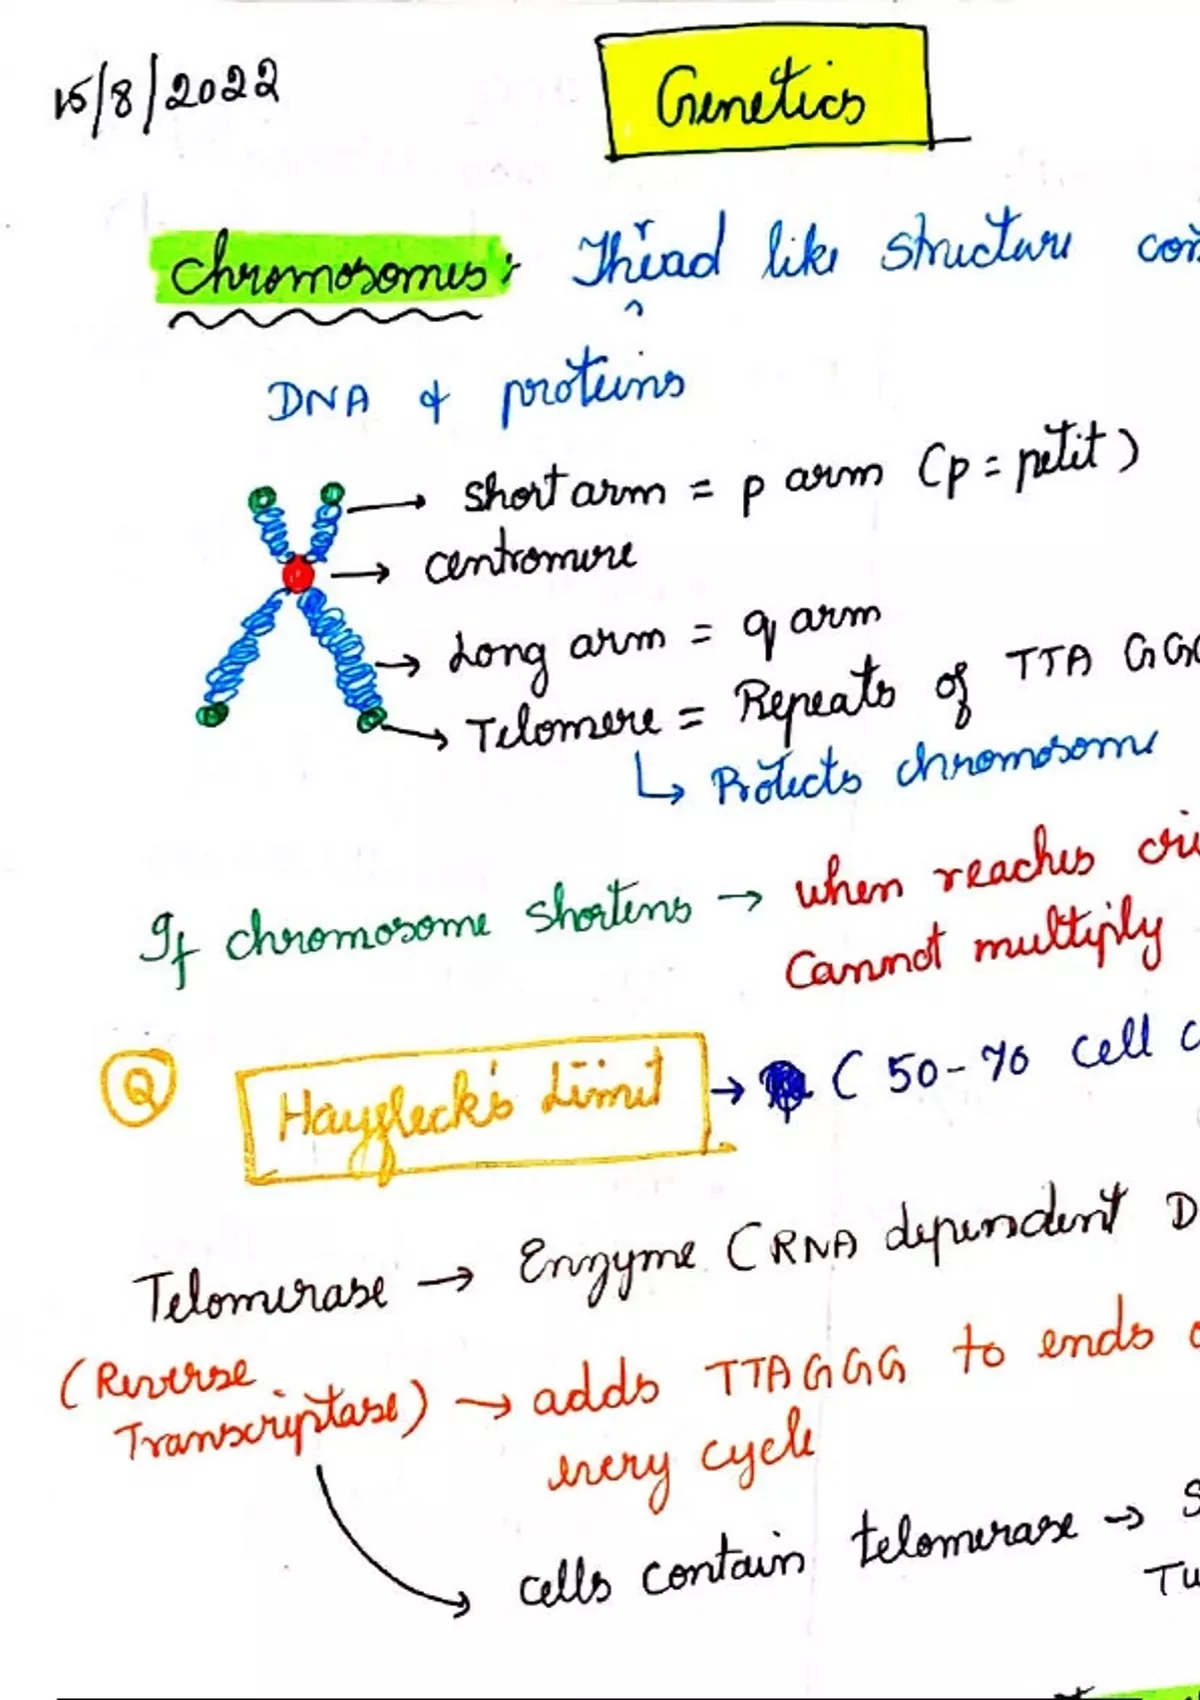 15/8/2022
Genetics
Chromosomes: Thread like structure con
DNA & proteins
Short arm = p arm (p = petit)
centromere
Long arm = q arm
Telomere = Repeats of TTA GG
↳ Protects chromosome
If chromosome shortens → when reaches cri
Cannot multiply
Q Hayflick's Limit → (50-70 cell c
Telomerase → Enzyme (RNA dependent D
(Reverse Transcriptase) → adds TTAGGG to ends o
every cycle
cells contain telomerase → S
Tu